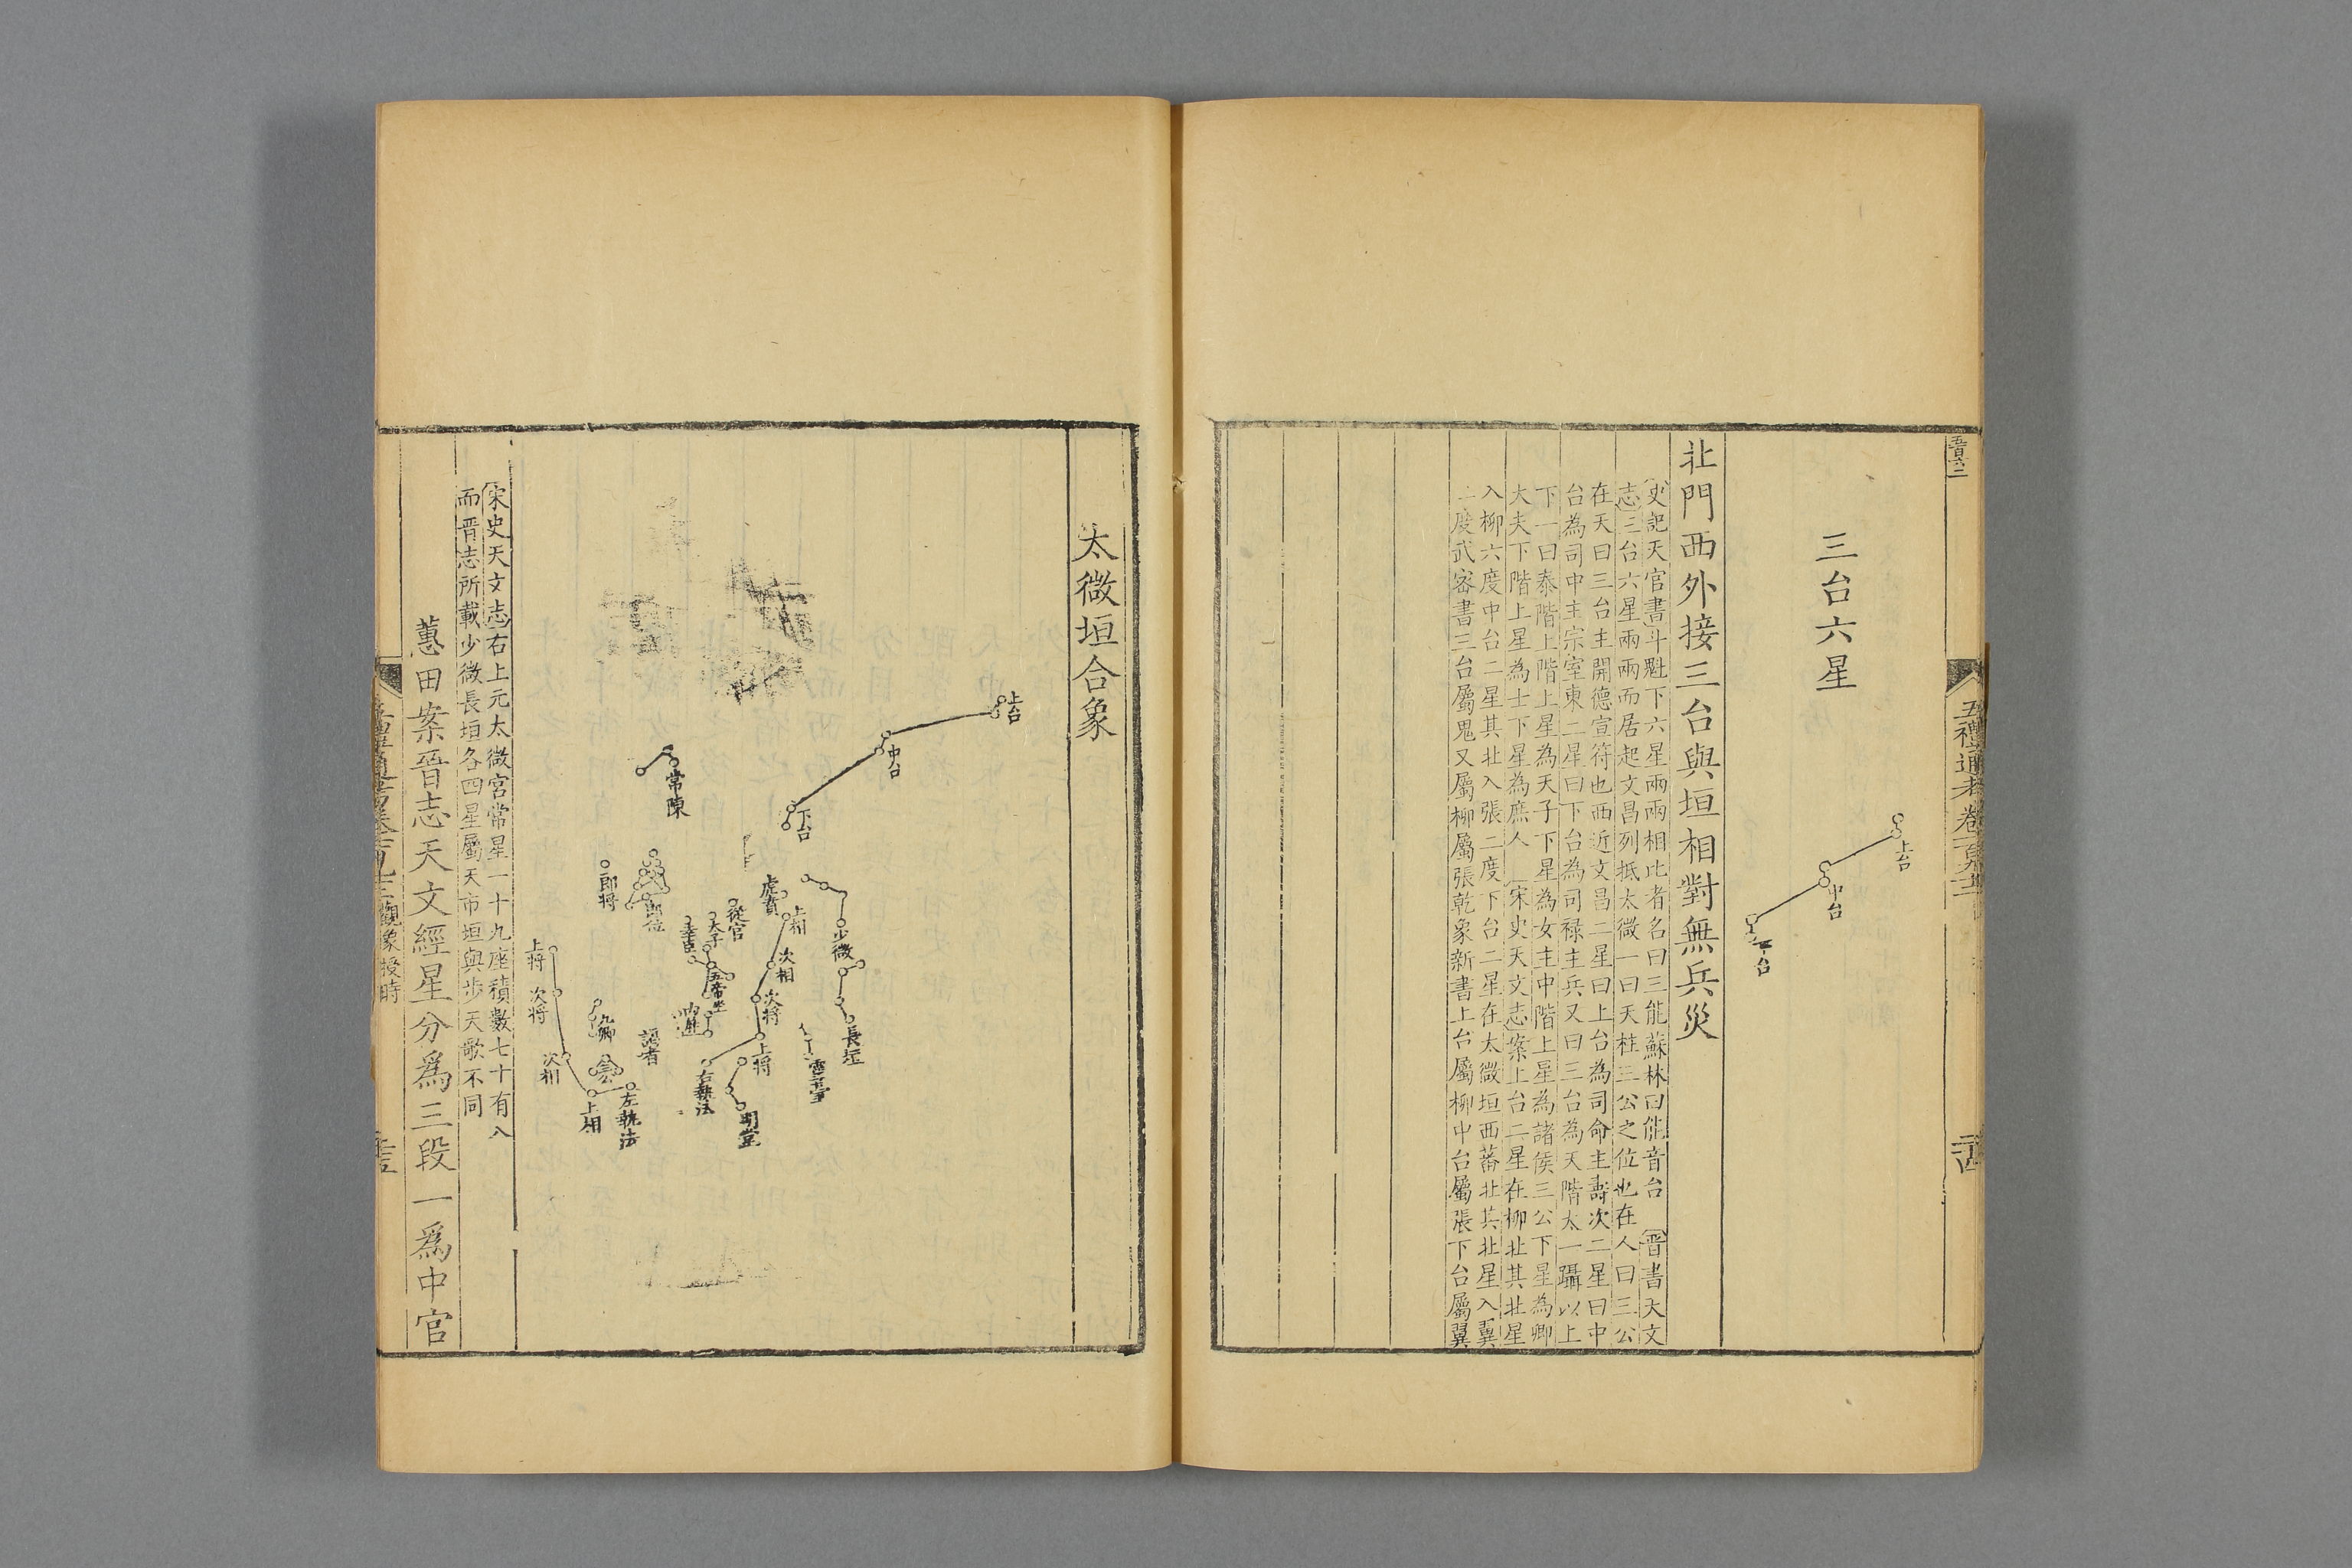 五禮通考卷一百九十三
三台六星
上台
中台
下台
北門西外接三台與垣相對無兵災
史記天官書斗魁下六星兩兩相比者名曰三能蘇林曰能音台 晉書天文
志三台六星兩兩而居起文昌列抵太微一曰天柱三公之位也在人曰三公
在天曰三台主開德宣符也西近文昌二星曰上台為司命主壽次二星曰中
台為司中主宗室東二星曰下台為司祿主兵又曰三台為天階太一躡以上
下一曰泰階上階上星為天子下星為女主中階上星為諸侯三公下星為卿
大夫下階上星為士下星為庶人 宋史天文志案上台二星在柳北其北星
入柳六度中台二星其北入張二度下台二星在太微垣西蕃北其北星入翼
二度武密書三台屬鬼又屬柳屬張乾象新書上台屬柳中台屬張下台屬翼
太微垣合象
上台
中台
下台
常陳
郎將
郎位
虎賁
從官
太子
幸臣
五帝坐
上相
次相
次將
上將
右執法
少微
長垣
靈臺
明堂
謁者
九卿
上將
次將
次相
上相
左執法
宋史天文志右上元太微宮常星一十九座積數七十有八
而晋志所載少微長垣各四星屬天市垣與步天歌不同
蕙田案晉志天文經星分為三段一為中官
觀象授時